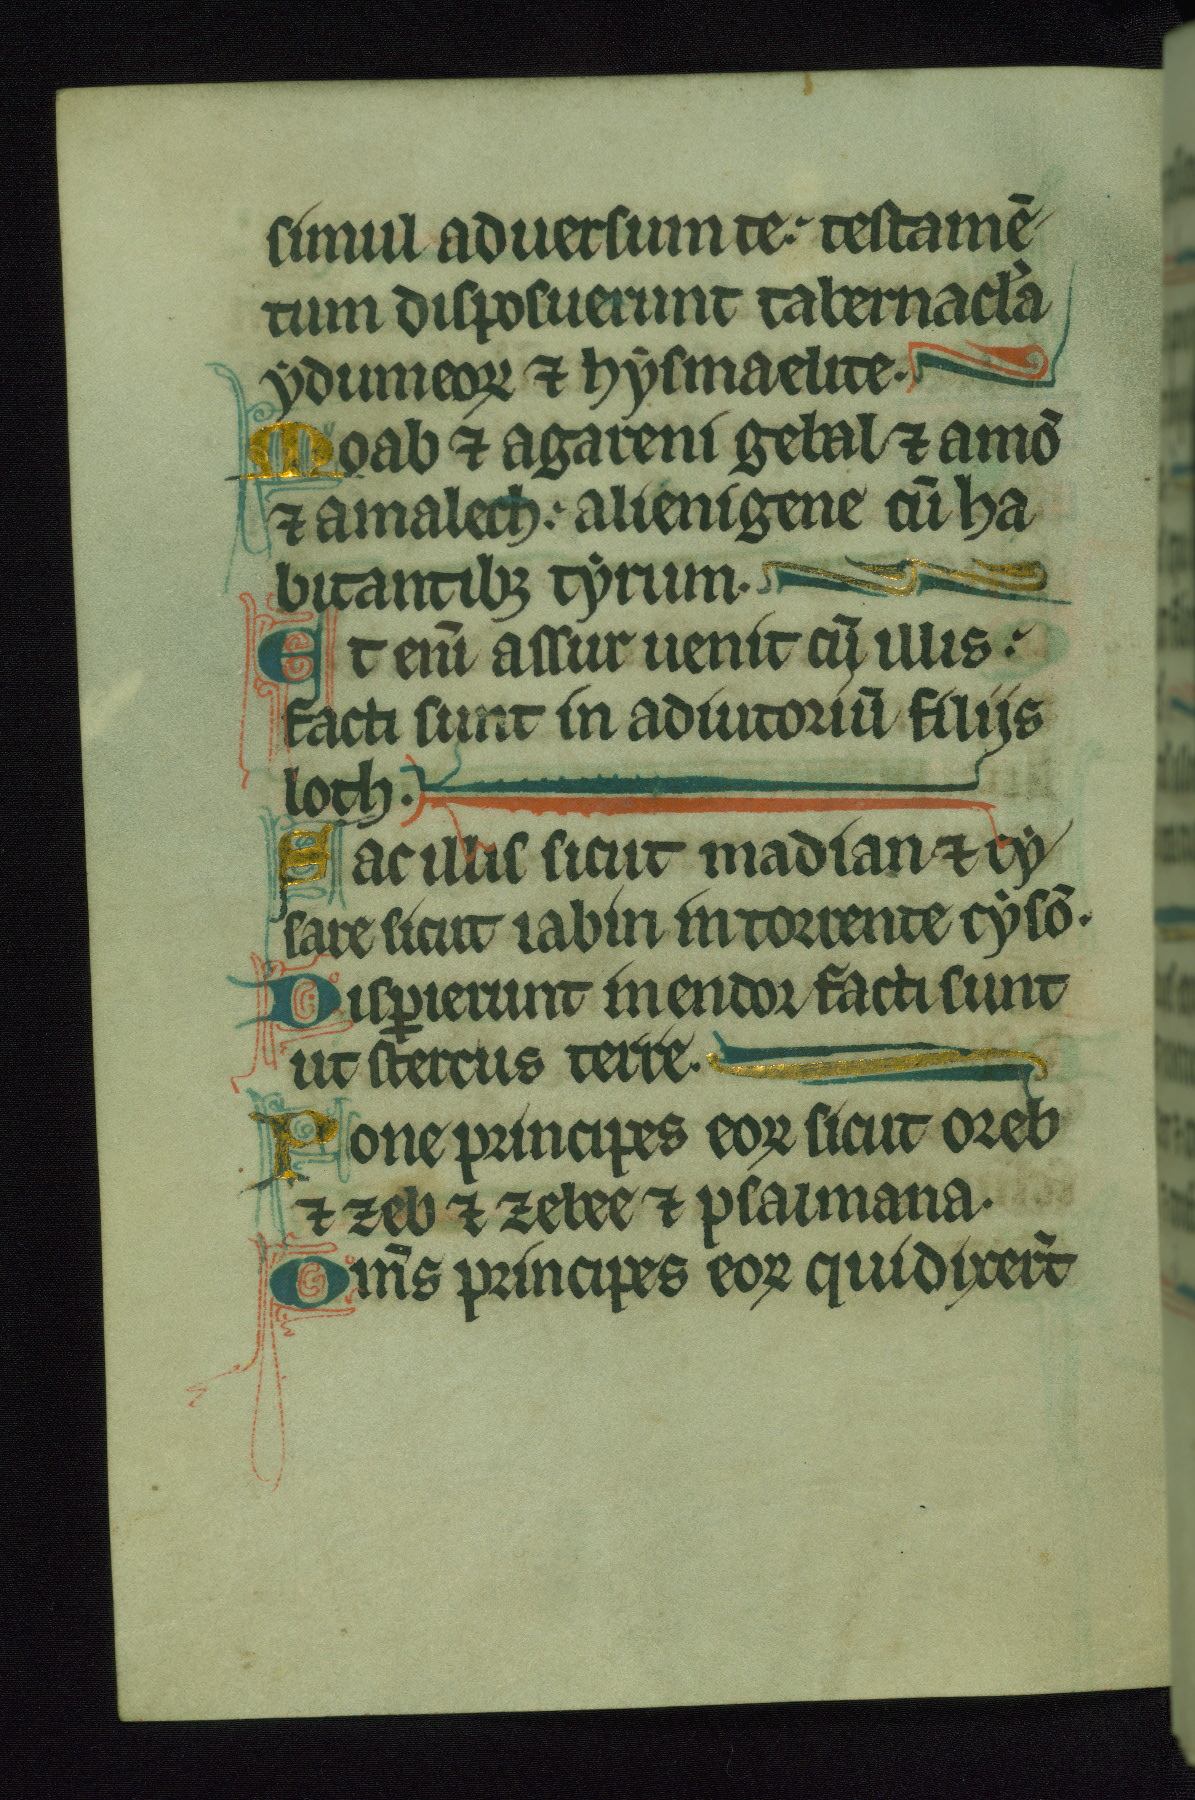 simul aduersum te: testamē
tum disposuerunt tabernacl'a
ẏdumeoꝝ ⁊ hẏsmaelite.
Moab ⁊ agareni gebal ⁊ amō
⁊ amalech: alienigene cū ha
bitantibꝫ tẏrum.
Et eni̅ assur uenit cū illis:
facti sunt in adiutoriū filijs
loth.
Fac illis sicut madian ⁊ cẏ
sare sicut iabin in torrente cẏsō.
Disꝑierunt in endor facti sunt
ut stercus terre.
Pone principes eoꝝ sicut oreb
⁊ zeb ⁊ zebee ⁊ psalmana.
Om̅s principes eoꝝ qui dixer̅t